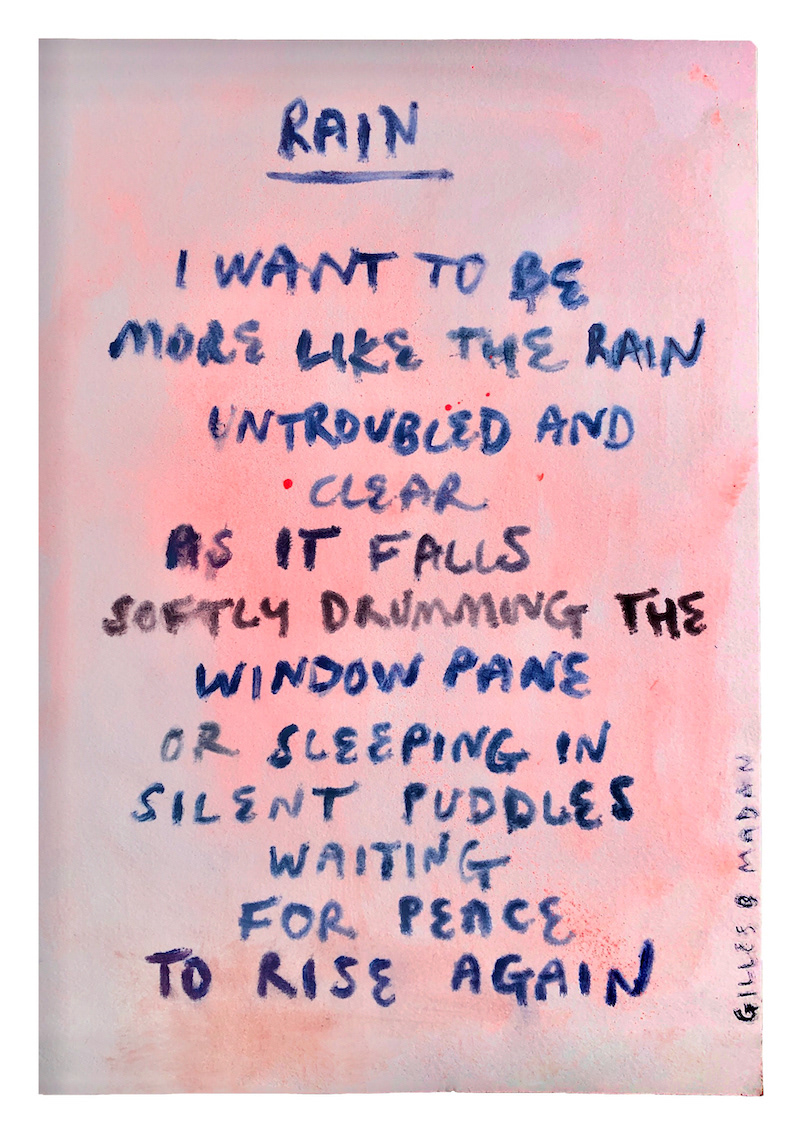 RAIN
I WANT TO BE
MORE LIKE THE RAIN
UNTROUBLED AND
CLEAR
AS IT FALLS
SOFTLY DRUMMING THE
WINDOW PANE
OR SLEEPING IN
SILENT PUDDLES
WAITING
FOR PEACE
TO RISE AGAIN
GILLES B MADAN